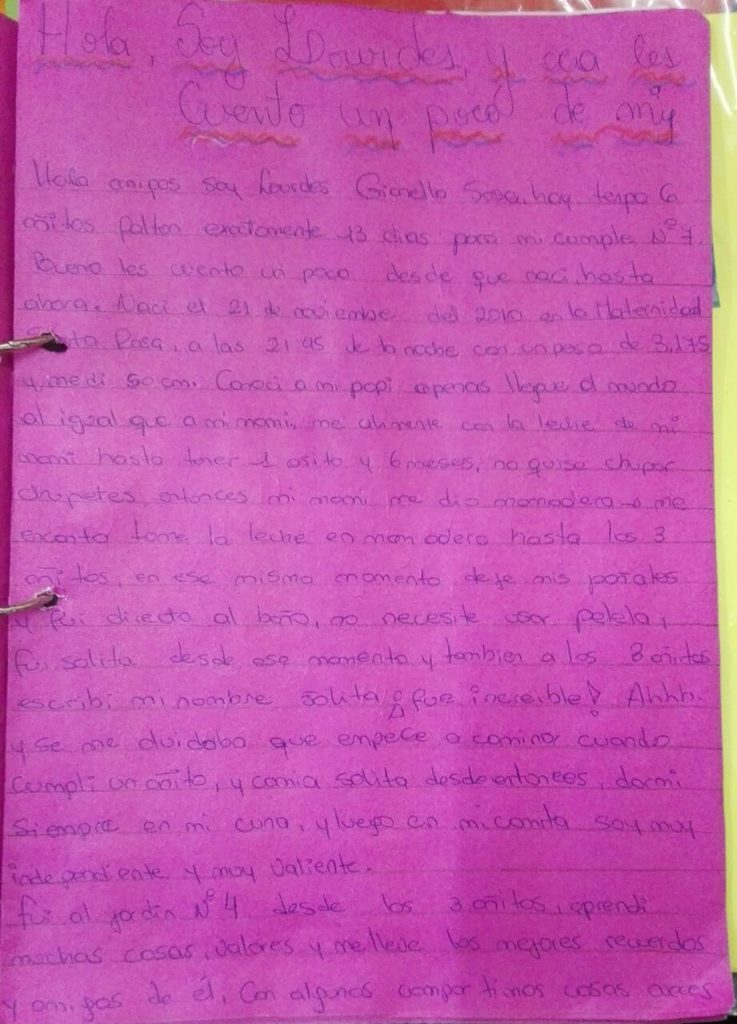 Hola, Soy Lourdes, y aca les
Cuento un poco de my
Hola amigos soy Lourdes Gionella Sosa, hoy tengo 6
añitos faltan exactamente 13 dias para mi cumple Nº 7.
Bueno les cuento un poco desde que naci hasta
ahora. Naci el 21 de noviembre del 2010 en la Maternidad
Santa Rosa, a las 21:45 de la noche con un peso de 3,175
y medi 50 cm. Conoci a mi papi apenas llegue al mundo
al igual que a mi mami, me alimente con la leche de mi
mami hasta tener 1 añito y 6 meses, no quise chupar
chupetes, entonces mi mami me dio mamadera y me
encanto tome la leche en mamadera hasta los 3
añitos, en ese mismo momento deje mis pañales
y fui directo al baño, no necesite usar pelela,
fui solita desde ese momento y tambien a los 3 añitos
escribi mi nombre solita ¡fue increible! Ahhh.
y se me olvidaba que empece a caminar cuando
cumpli un añito, y comia solita desde entonces, dormi
siempre en mi cuna, y luego en mi camita soy muy
independiente y muy valiente.
fui al jardin Nº 4 desde los 3 añitos, aprendi
muchas cosas, valores y me lleve los mejores recuerdos
y amigas de él. Con algunos compartimos cosas